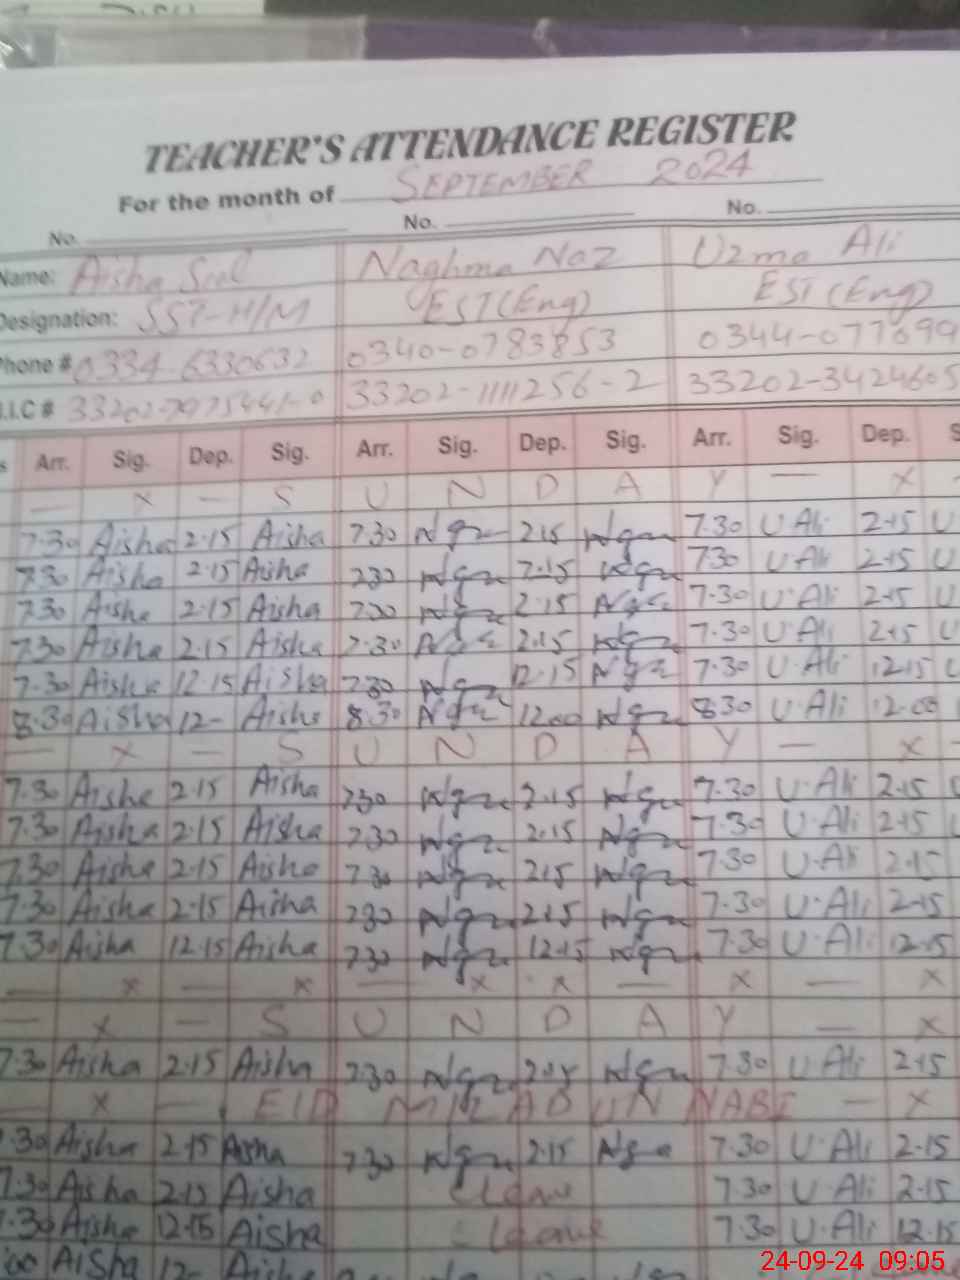 TEACHER'S ATTENDANCE REGISTER
For the month of SEPTEMBER 2024
No. No. No.
Name: Aisha Naghma Naz Uzma Ali
Designation: SST-H/M EST(Eng) EST (Eng)
Phone # 0334-6330632 0340-0783853 0344-077699
I.C # 33202- 33202-1111256-2 33202-3424605
s Arr. Sig. Dep. Sig. Arr. Sig. Dep. Sig. Arr. Sig. Dep. S
— x — S U N D A Y — x -
7.30 Aisha 2.15 Aisha 7.30 2.15 7.30 U.Ali 2.15 U
7.30 Aisha 2.15 Aisha 7.30 2.15 7.30 U.Ali 2.15 U
7.30 Aisha 2.15 Aisha 7.30 2.15 7.30 U.Ali 2.15 U
7.30 Aisha 2.15 Aisha 7.30 2.15 7.30 U.Ali 2.15 U
7.30 Aisha 12.15 Aisha 7.30 12.15 7.30 U.Ali 12.15 U
8.30 Aisha 12- Aisha 8.30 1200 8.30 U.Ali 12.00
— x — S U N D A Y — x -
7.30 Aisha 2.15 Aisha 7.30 2.15 7.30 U.Ali 2.15
7.30 Aisha 2.15 Aisha 7.30 2.15 7.30 U.Ali 2.15
7.30 Aisha 2.15 Aisha 7.30 2.15 7.30 U.Ali 2.15
7.30 Aisha 2.15 Aisha 7.30 2.15 7.30 U.Ali 2.15
7.30 Aisha 12.15 Aisha 7.30 12.15 7.30 U.Ali 12.15
— x — x — x x — x — x
— x — S U N D A Y — x
7.30 Aisha 2.15 Aisha 7.30 7.30 U.Ali 2.15
— x — EID MILAD UN NABI — x
.30 Aisha 2.15 Aisha 7.30 2.15 7.30 U.Ali 2.15
7.30 Aisha 2.15 Aisha Leave 7.30 U.Ali 2.15
7.30 Aisha 12.15 Aisha Leave 7.30 U.Ali 12.15
Aisha 12- Aisha
24-09-24 09:05